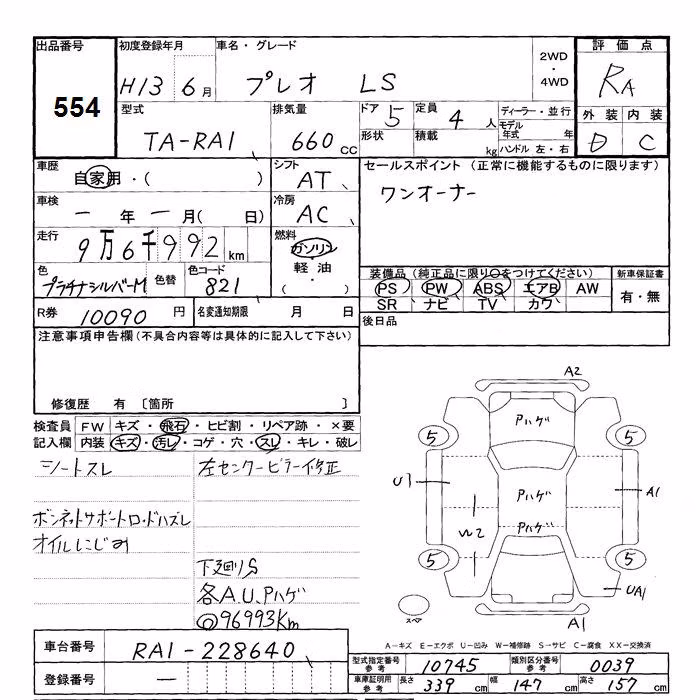 出品番号
554
初度登録年月
H13 6月
車名・グレード
プレオ LS
2WD
・
4WD
評価点
RA
外装 内装
D C
型式
TA-RA1
排気量
660 CC
ドア 5
形状
定員 4 人
積載 kg
ディーラー・並行
モデル年式 年
ハンドル 左・右
車歴
自家用・( )
シフト
AT
セールスポイント (正常に機能するものに限ります)
ワンオーナー
車検
ー 年 ー 月( 日)
冷房
AC
走行
9万6千992 km
燃料
ガソリン
・
軽油
・
( )
色
プラチナシルバーM
色替
色コード
821
装備品 (純正品に限り○をつけてください)
PS PW ABS エアB AW
SR ナビ TV カワ
新車保証書
有・無
R券 10090 円
名変通知期限 月 日
後日品
注意事項申告欄 (不具合内容等は具体的に記入して下さい)
修復歴 有 〔箇所 〕
検査員
記入欄
FW キズ・飛石・ヒビ割・リペア跡・×要
内装 キズ・汚レ・コゲ・穴・スレ・キレ・破レ
シートスレ
左センターピラー修正
ボンネットサポートロッドハズレ
オイルにじみ
下廻りS
各A.U.Pハゲ
◎96993Km
A2
Pハゲ
5
5
U1
Pハゲ
A1
W2
Pハゲ
5
5
UA1
スペア
A1
A-キズ E-エクボ U-凹み W-補修跡 S-サビ C-腐食 XX-交換済
車台番号
RA1-228640
登録番号
ー
型式指定番号
参考
10745
類別区分番号
参考
0039
車庫証明用
参考
長さ 339 cm
幅 147 cm
高さ 157 cm